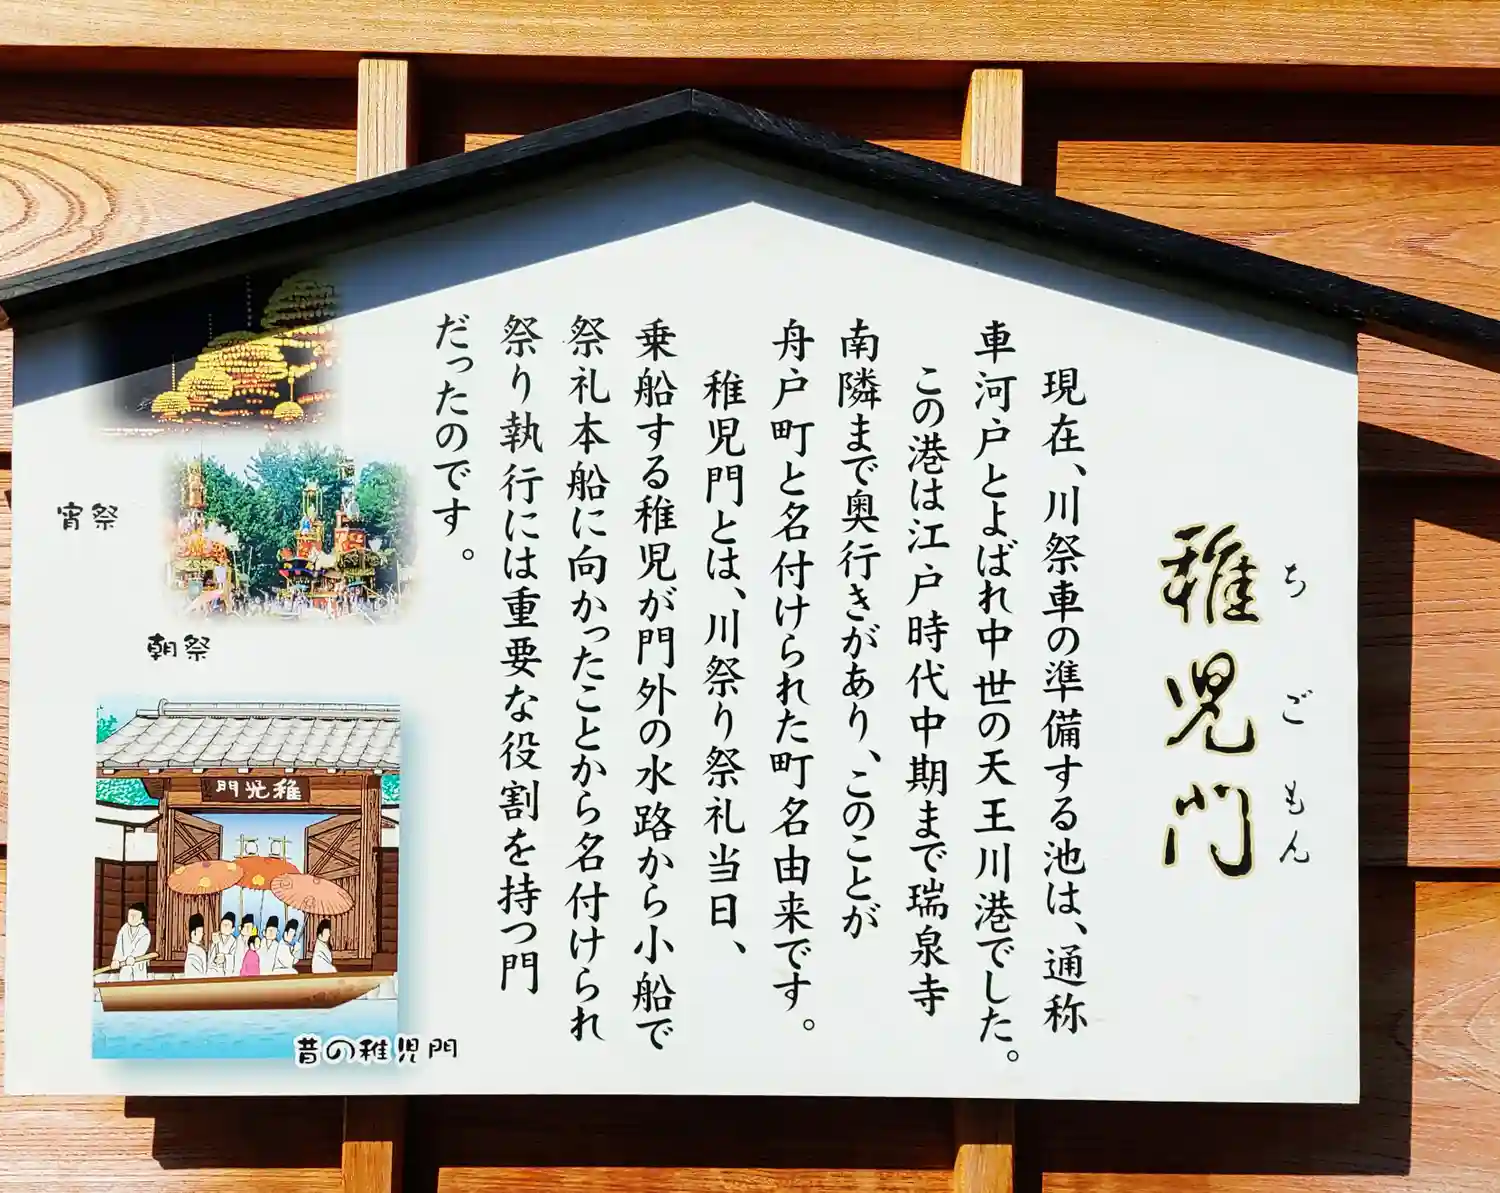 稚児門
ちごもん
現在、川祭車の準備する池は、通称
車河戸とよばれ中世の天王川港でした。
この港は江戸時代中期まで瑞泉寺
南隣まで奥行きがあり、このことが
舟戸町と名付けられた町名由来です。
稚児門とは、川祭り祭礼当日、
乗船する稚児が門外の水路から小船で
祭礼本船に向かったことから名付けられ
祭り執行には重要な役割を持つ門
だったのです。
宵祭
朝祭
門児稚
昔の稚児門